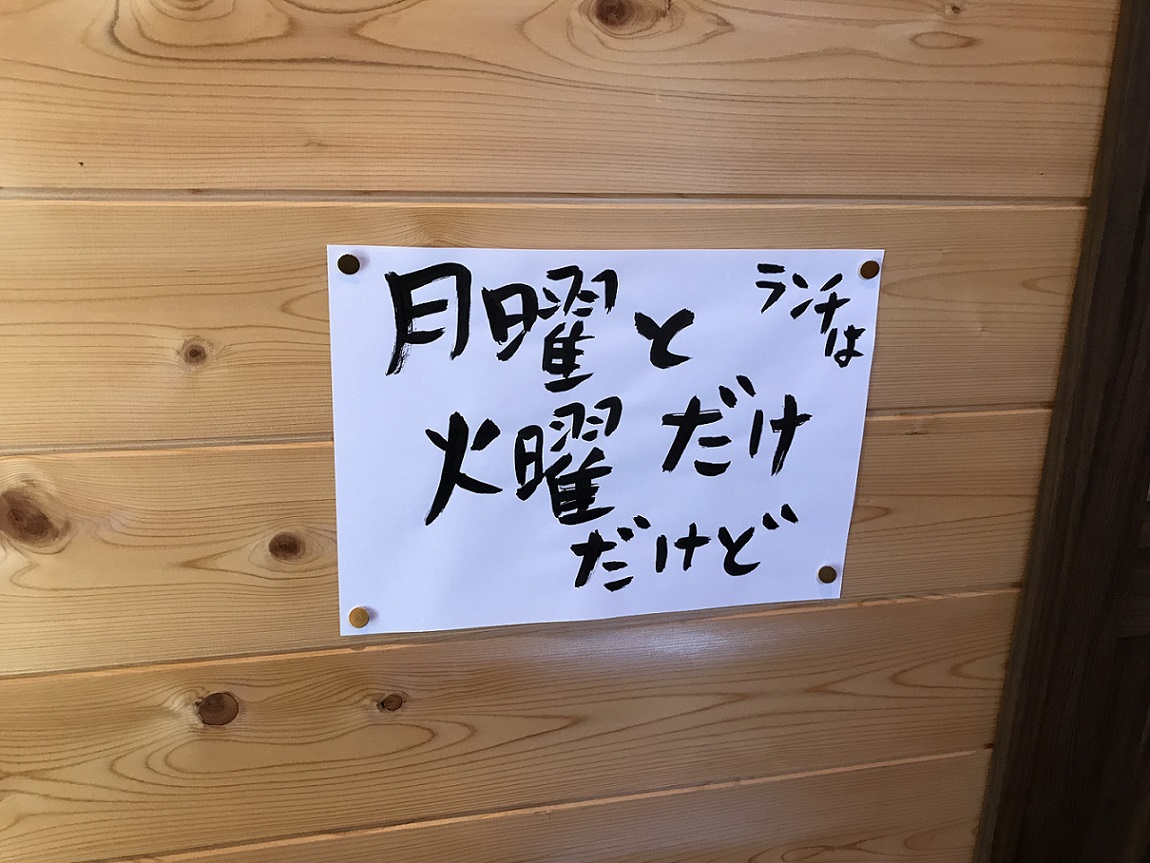 ランチは
月曜と
火曜だけ
だけど